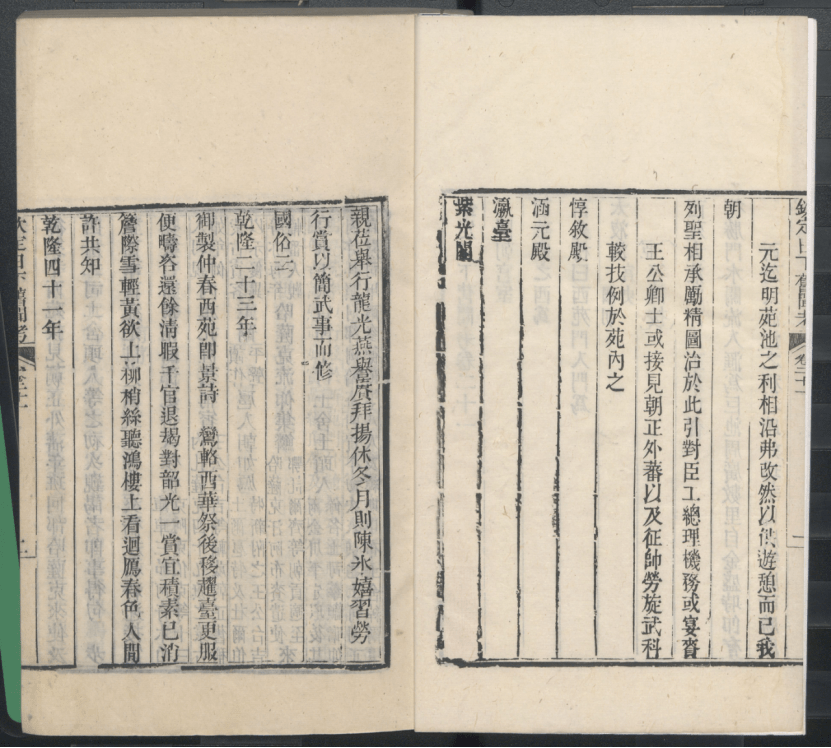 欽定日下舊聞考 卷二十一
元迄明苑池之利相沿弗改然以供遊憩而已我
朝
列聖相承勵精圖治於此引對臣工總理機務或宴賚
王公卿士或接見朝正外藩以及征帥勞旋武科
較技例於苑內之
惇敘殿
涵元殿
瀛臺
紫光閣
親莅舉行龍光燕譽賡拜揚休冬月則陳氷嬉習勞
行賞以簡武事而修
國俗云
乾隆二十三年
御製仲春西苑卽景詩 鸞輅西華祭後移趯臺更服
便疇咨還餘清暇千官退朅對韶光一賞宜積素已消
簷際雪輕黃欲上柳梢絲聽鴻樓上看迴鴈春色人間
許共知
乾隆四十一年
欽定日下舊聞考